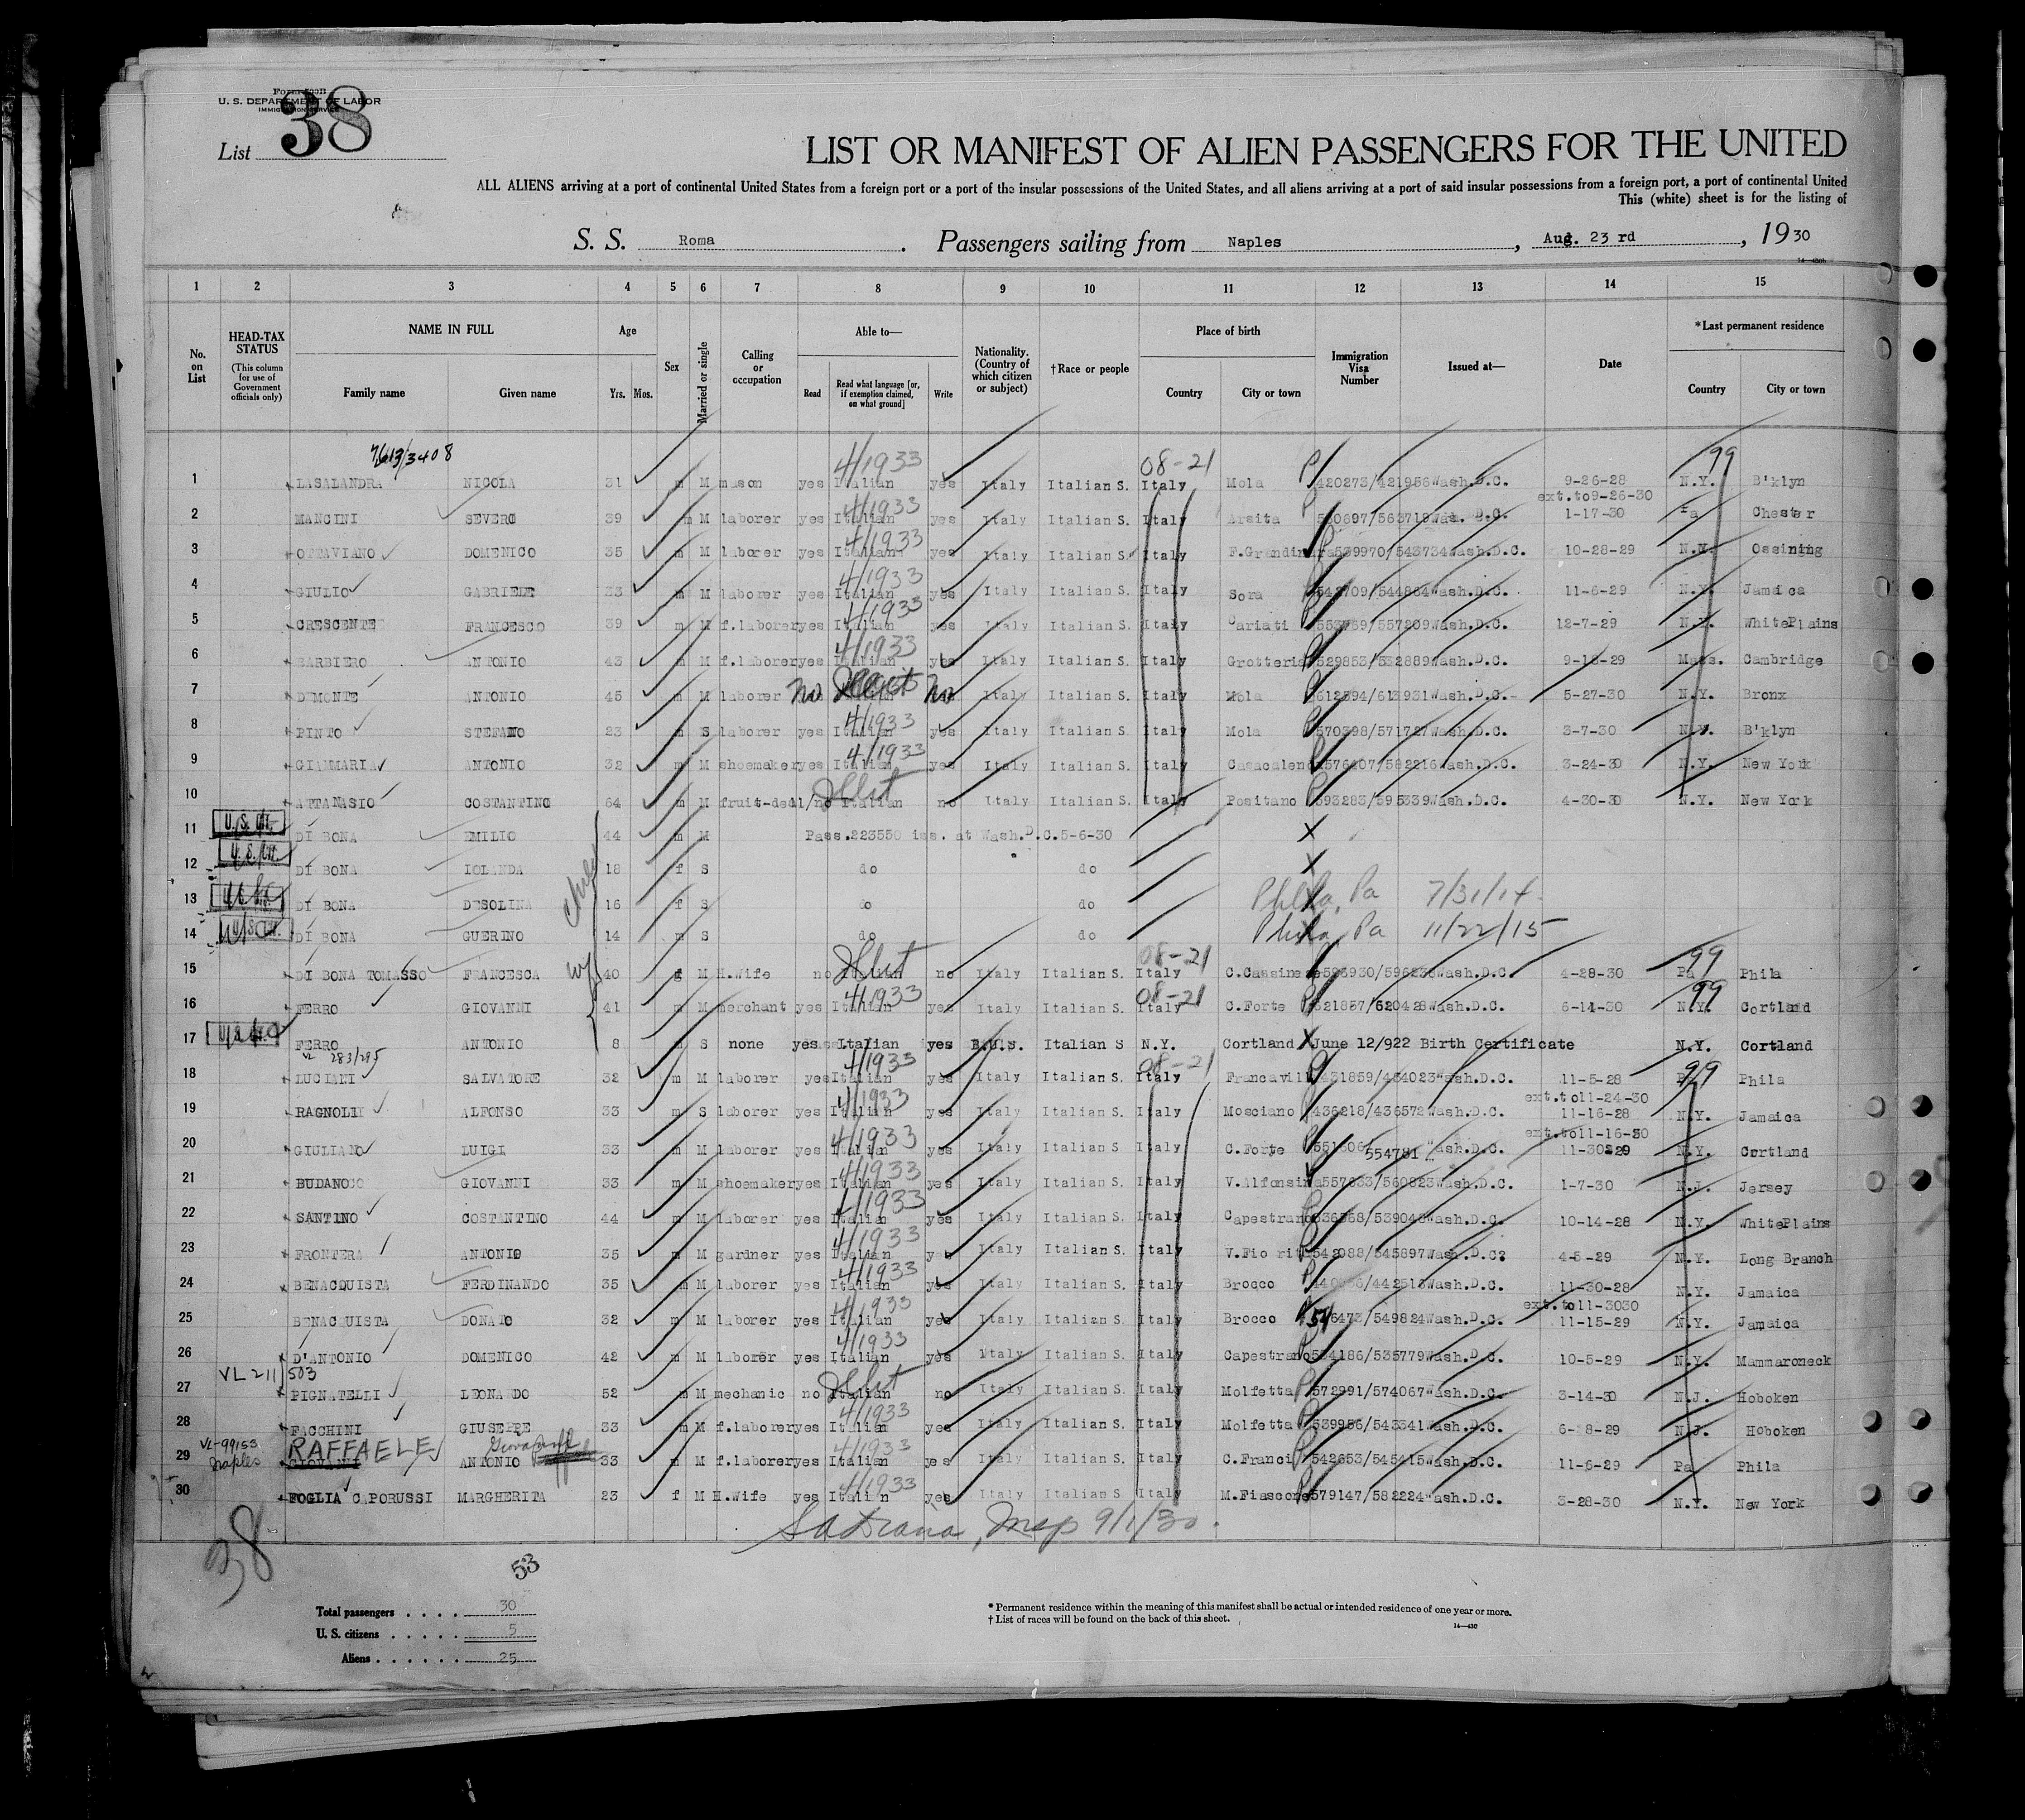 Form 500B
U. S. DEPARTMENT OF LABOR
IMMIGRATION SERVICE
List 38
LIST OR MANIFEST OF ALIEN PASSENGERS FOR THE UNITED
ALL ALIENS arriving at a port of continental United States from a foreign port or a port of the insular possessions of the United States, and all aliens arriving at a port of said insular possessions from a foreign port, a port of continental United
This (white) sheet is for the listing of
S. S. Roma . Passengers sailing from Naples , Aug. 23 rd , 19 30
1 2 3 4 5 6 7 8 9 10 11 12 13 14 15
No. on List HEAD-TAX STATUS (This column for use of Government officials only) NAME IN FULL Family name Given name Age Yrs. Mos. Sex Married or single Calling or occupation Able to— Read Read what language [or, if exemption claimed, on what ground] Write Nationality. (Country of which citizen or subject) †Race or people Place of birth Country City or town Immigration Visa Number Issued at— Date *Last permanent residence Country City or town
4/1933 08-21 99
1 LASALANDRA NICOLA 31 m M mason yes Italian yes Italy Italian S. Italy Mola 420273/421956 Wash.D.C. 9-26-28 N.Y. B'klyn
4/1933 ext.to9-26-30
2 MANCINI SEVERO 39 m M laborer yes Italian yes Italy Italian S. Italy Arsita Wash. D.C. 1-17-30 Pa Chester
4/1933
3 OTTAVIANO DOMENICO 35 m M laborer yes Italian yes Italy Italian S. Italy 539970/543734 Wash.D.C. 10-28-29 N.Y. Ossining
4/1933
4 GIULIO GABRIELE 33 m M laborer yes Italian yes Italy Italian S. Italy Sora Wash.D.C. 11-6-29 N.Y. Jamaica
4/1933
5 CRESCENTE FRANCESCO 39 m M f.laborer yes Italian yes Italy Italian S. Italy Cariati Wash.D.C. 12-7-29 N.Y. WhitePlains
4/1933
6 BARBIERO ANTONIO 43 m M f.laborer yes Italian yes Italy Italian S. Italy Grotteria 529853/532889 Wash.D.C. Mass. Cambridge
7 DEMONTE ANTONIO 45 m M laborer no Illit no Italy Italian S. Italy Mola Wash.D.C. 5-27-30 N.Y. Bronx
4/1933
8 PINTO STEFANO 23 m S laborer yes Italian yes Italy Italian S. Italy Mola Wash.D.C. 3-7-30 N.Y. B'klyn
4/1933
9 GIANMARIA ANTONIO 32 m M shoemaker yes Italian yes Italy Italian S. Italy Wash.D.C. 3-24-30 N.Y. New York
Illit
10 ATTANASIO COSTANTINO 64 m M no Italian no Italy Italian S. Italy Positano 593283/595339 Wash.D.C. 4-30-30 N.Y. New York
11 DI BONA EMILIO 44 m M Pass.223550 iss. at Wash.D.C.5-6-30
12 DI BONA IOLANDA 18 f S do do
13 DI BONA DESOLINA 16 f S do do Phila, Pa 7/31/14
14 DI BONA GUERINO 14 m S do do Phila, Pa 11/22/15
Illit 08-21 99
15 DI BONA TOMASSO FRANCESCA 40 f M H.Wife no Italian no Italy Italian S. Italy C.Cassinese Wash.D.C. 4-28-30 Pa Phila
4/1933 08-21 99
16 FERRO GIOVANNI 41 m M merchant yes Italian yes Italy Italian S. Italy C.Forte 621857/620428 Wash.D.C. 6-14-30 N.Y. Cortland
17 FERRO ANTONIO 8 m S none yes Italian yes Italian S N.Y. Cortland June 12/922 Birth Certificate N.Y. Cortland
4/1933 08-21 99
18 LUCIANI SALVATORE 32 m M laborer yes Italian yes Italy Italian S. Italy Wash.D.C. 11-5-28 Phila
4/1933 ext.to11-24-30
19 RAGNOLI ALFONSO 33 m S laborer yes Italian yes Italy Italian S. Italy Mosciano 436218/436572 Wash.D.C. 11-16-28 N.Y. Jamaica
4/1933 ext.to11-16-30
20 GIULIANO LUIGI 33 m M laborer yes Italian yes Italy Italian S. Italy C.Forte 554781 Wash.D.C. N.Y. Cortland
4/1933
21 BUDANO GIOVANNI 33 m M shoemaker yes Italian yes Italy Italian S. Italy V.Alfonsina Wash.D.C. 1-7-30 N.J. Jersey
4/1933
22 SANTINO COSTANTINO 44 m M laborer yes Italian yes Italy Italian S. Italy Capestrano Wash.D.C. 10-14-28 N.Y. WhitePlains
4/1933
23 FRONTERA ANTONIO 35 m M gardner yes Italian yes Italy Italian S. Italy 542088/545897 Wash.D.C. N.Y. Long Branch
4/1933
24 BENACQUISTA FERDINANDO 35 m M laborer yes Italian yes Italy Italian S. Italy Brocco Wash.D.C. 11-30-28 N.Y. Jamaica
4/1933 ext.to11-3030
25 BENACQUISTA DONATO 32 m M laborer yes Italian yes Italy Italian S. Italy Brocco Wash.D.C. 11-15-29 N.Y. Jamaica
4/1933
26 D'ANTONIO DOMENICO 42 m M laborer yes Italian yes Italy Italian S. Italy Capestrano 534186/535779 Wash.D.C. 10-5-29 N.Y. Mammaroneck
VL 211/503 Illit
27 PIGNATELLI LEONARDO 52 m M mechanic no Italian no Italy Italian S. Italy Molfetta 572991/574067 Wash.D.C. 3-14-30 N.J. Hoboken
4/1933
28 FACCHINI GIUSEPPE 33 m M f.laborer yes Italian yes Italy Italian S. Italy Molfetta 539956/543341 Wash.D.C. N.J. Hoboken
VL-99153 Naples RAFFAELE Giovanni 4/1933
29 GIOVANNI ANTONIO 33 m M f.laborer yes Italian yes Italy Italian S. Italy 542653/545415 Wash.D.C. 11-6-29 Pa Phila
4/1933
30 FOGLIA CAPORUSSI MARGHERITA 23 f M H.Wife yes Italian yes Italy Italian S Italy M.Fiascone 579147/582224 Wash.D.C. 3-28-30 N.Y. New York
9/1/30
38
53
Total passengers . . . . 30
U. S. citizens . . . . . 5
Aliens . . . . . . 25
* Permanent residence within the meaning of this manifest shall be actual or intended residence of one year or more.
† List of races will be found on the back of this sheet.